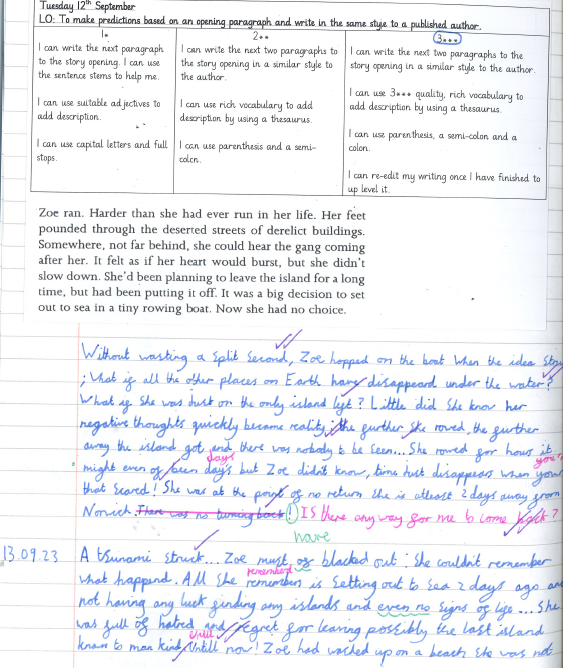 Tuesday 12th September
LO: To make predictions based on an opening paragraph and write in the same style to a published author.
1*
2**
3***
I can write the next paragraph
to the story opening. I can use
the sentence stems to help me.
I can use suitable adjectives to
add description.
I can use capital letters and full
stops.
I can write the next two paragraphs to
the story opening in a similar style to
the author.
I can use rich vocabulary to add
description by using a thesaurus.
I can use parenthesis and a semi-
colon.
I can write the next two paragraphs to the
story opening in a similar style to the author.
I can use 3*** quality, rich vocabulary to
add description by using a thesaurus.
I can use parenthesis, a semi-colon and a
colon.
I can re-edit my writing once I have finished to
up level it.
Zoe ran. Harder than she had ever run in her life. Her feet
pounded through the deserted streets of derelict buildings.
Somewhere, not far behind, she could hear the gang coming
after her. It felt as if her heart would burst, but she didn't
slow down. She'd been planning to leave the island for a long
time, but had been putting it off. It was a big decision to set
out to sea in a tiny rowing boat. Now she had no choice.
Without wasting a split second, Zoe hopped on the boat when the idea
; What if all the other places on Earth have disappeard under the water?
What if she was just on the only island left? Little did she know her
negative thoughts quickly became reality; the further she rowed, the further
away the island got and there was nobody to be seen... She rowed for hours it
days
your
might even of been day's but Zoe didn't know, time just disappears when your
that scared! She was at the point of no return she is atleast 2 days away from
Norwich. There was no turning back! IS there any way for me to come back?
have
13.09.23
A tsunami struck... Zoe must of blacked out: She couldn't remember
rememberd
what happend. All she remember is setting out to sea 2 days ago and
not having any luck finding any islands and even no signs of life... She
was full of hatred and regret for leaving possibly the last island
until
known to man kind, Untill now! Zoe had washed up on a beach she was not